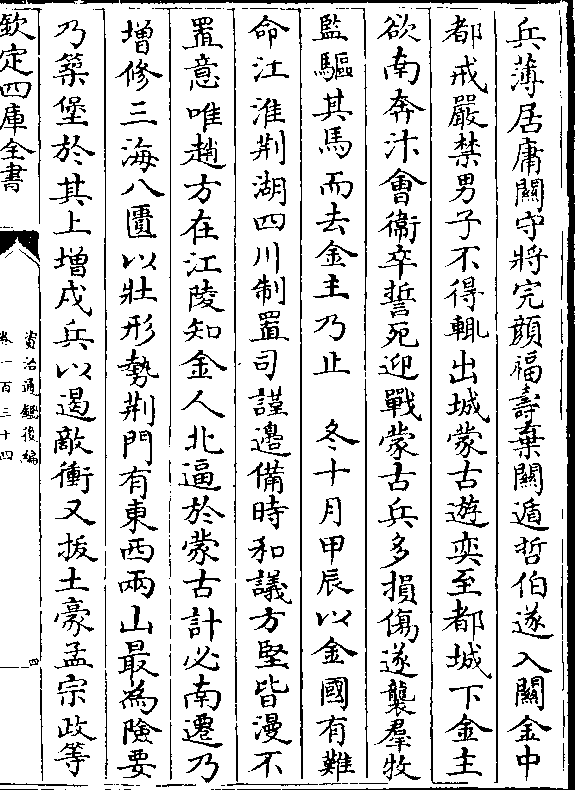 兵薄居庸關守將完顔福壽棄關遁哲伯遂入關金中
都戒嚴禁男子不得輒出城蒙古遊奕至都城下金主
欲南奔汴會衞卒誓死迎戰蒙古兵多損傷遂襲羣牧
監驅其馬而去金主乃止　冬十月甲辰以金國有難
命江淮荆湖四川制置司謹邊備時和議方堅皆漫不
置意唯趙方在江陵知金人北逼於蒙古計必南遷乃
增修三海八匱以壯形勢荆門有東西兩山最為險要
乃築堡於其上增戍兵以遏敵衝又拔土豪孟宗政等
欽定四庫全書
資治通鑑後編
卷一百三十四
四